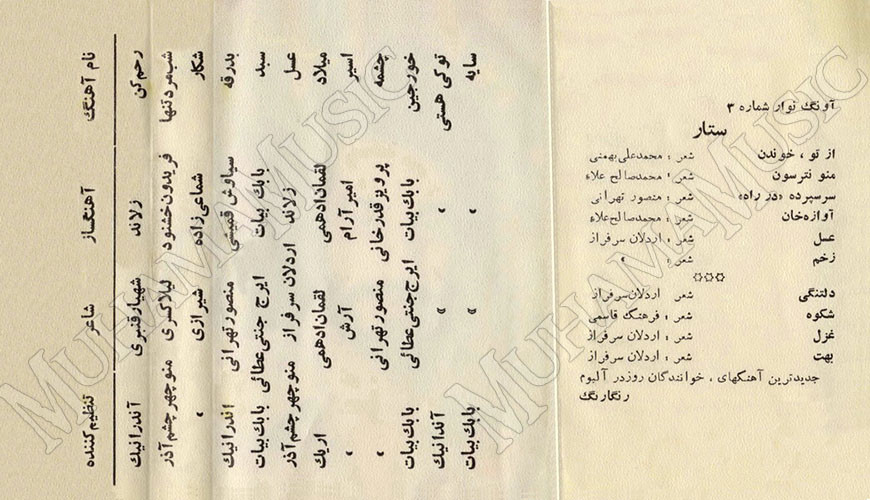 نام آهنگ آهنگساز شاعر تنظیم کننده
رحم کن زلاند شهیار قنبری آندرانیک
شب مرد تنها فریدون خشنود لیلا کسری منوچهر چشم آذر
شکار شماعی زاده شیرازی »
بدرقه سیاوش قمیشی منصور تهرانی اندرانیک
سبد بابک بیات ایرج جنتی عطائی بابک بیات
عسل زلاند اردلان سرفراز منوچهر چشم آذر
میلاد لقمان ادهمی لقمان ادهمی اریک
اسیر امیر آرام آرش »
چشمه پرویز قدرخانی منصور تهرانی »
خورجین بابک بیات ایرج جنتی عطائی بابک بیات
تو کی هستی » » آندانیک
سایه » » بابک بیات
آونگ نوار شماره ۳
ستار
از تو ، خوندن شعر : محمدعلی بهمنی
منو نترسون شعر : محمد صالح علاء
سرسپرده «در راه» شعر : منصور تهرانی
آوازه خان شعر : محمد صالح علاء
عسل شعر : اردلان سرفراز
زخم شعر : »
دلتنگی شعر : اردلان سرفراز
شکوه شعر : فرهنگ قاسمی
غزل شعر : اردلان سرفراز
بهت شعر : اردلان سرفراز
جدیدترین آهنگهای ، خوانندگان روز در آلبوم
رنگارنگ
MUHAMAMUSIC
MUHAMAMUSIC